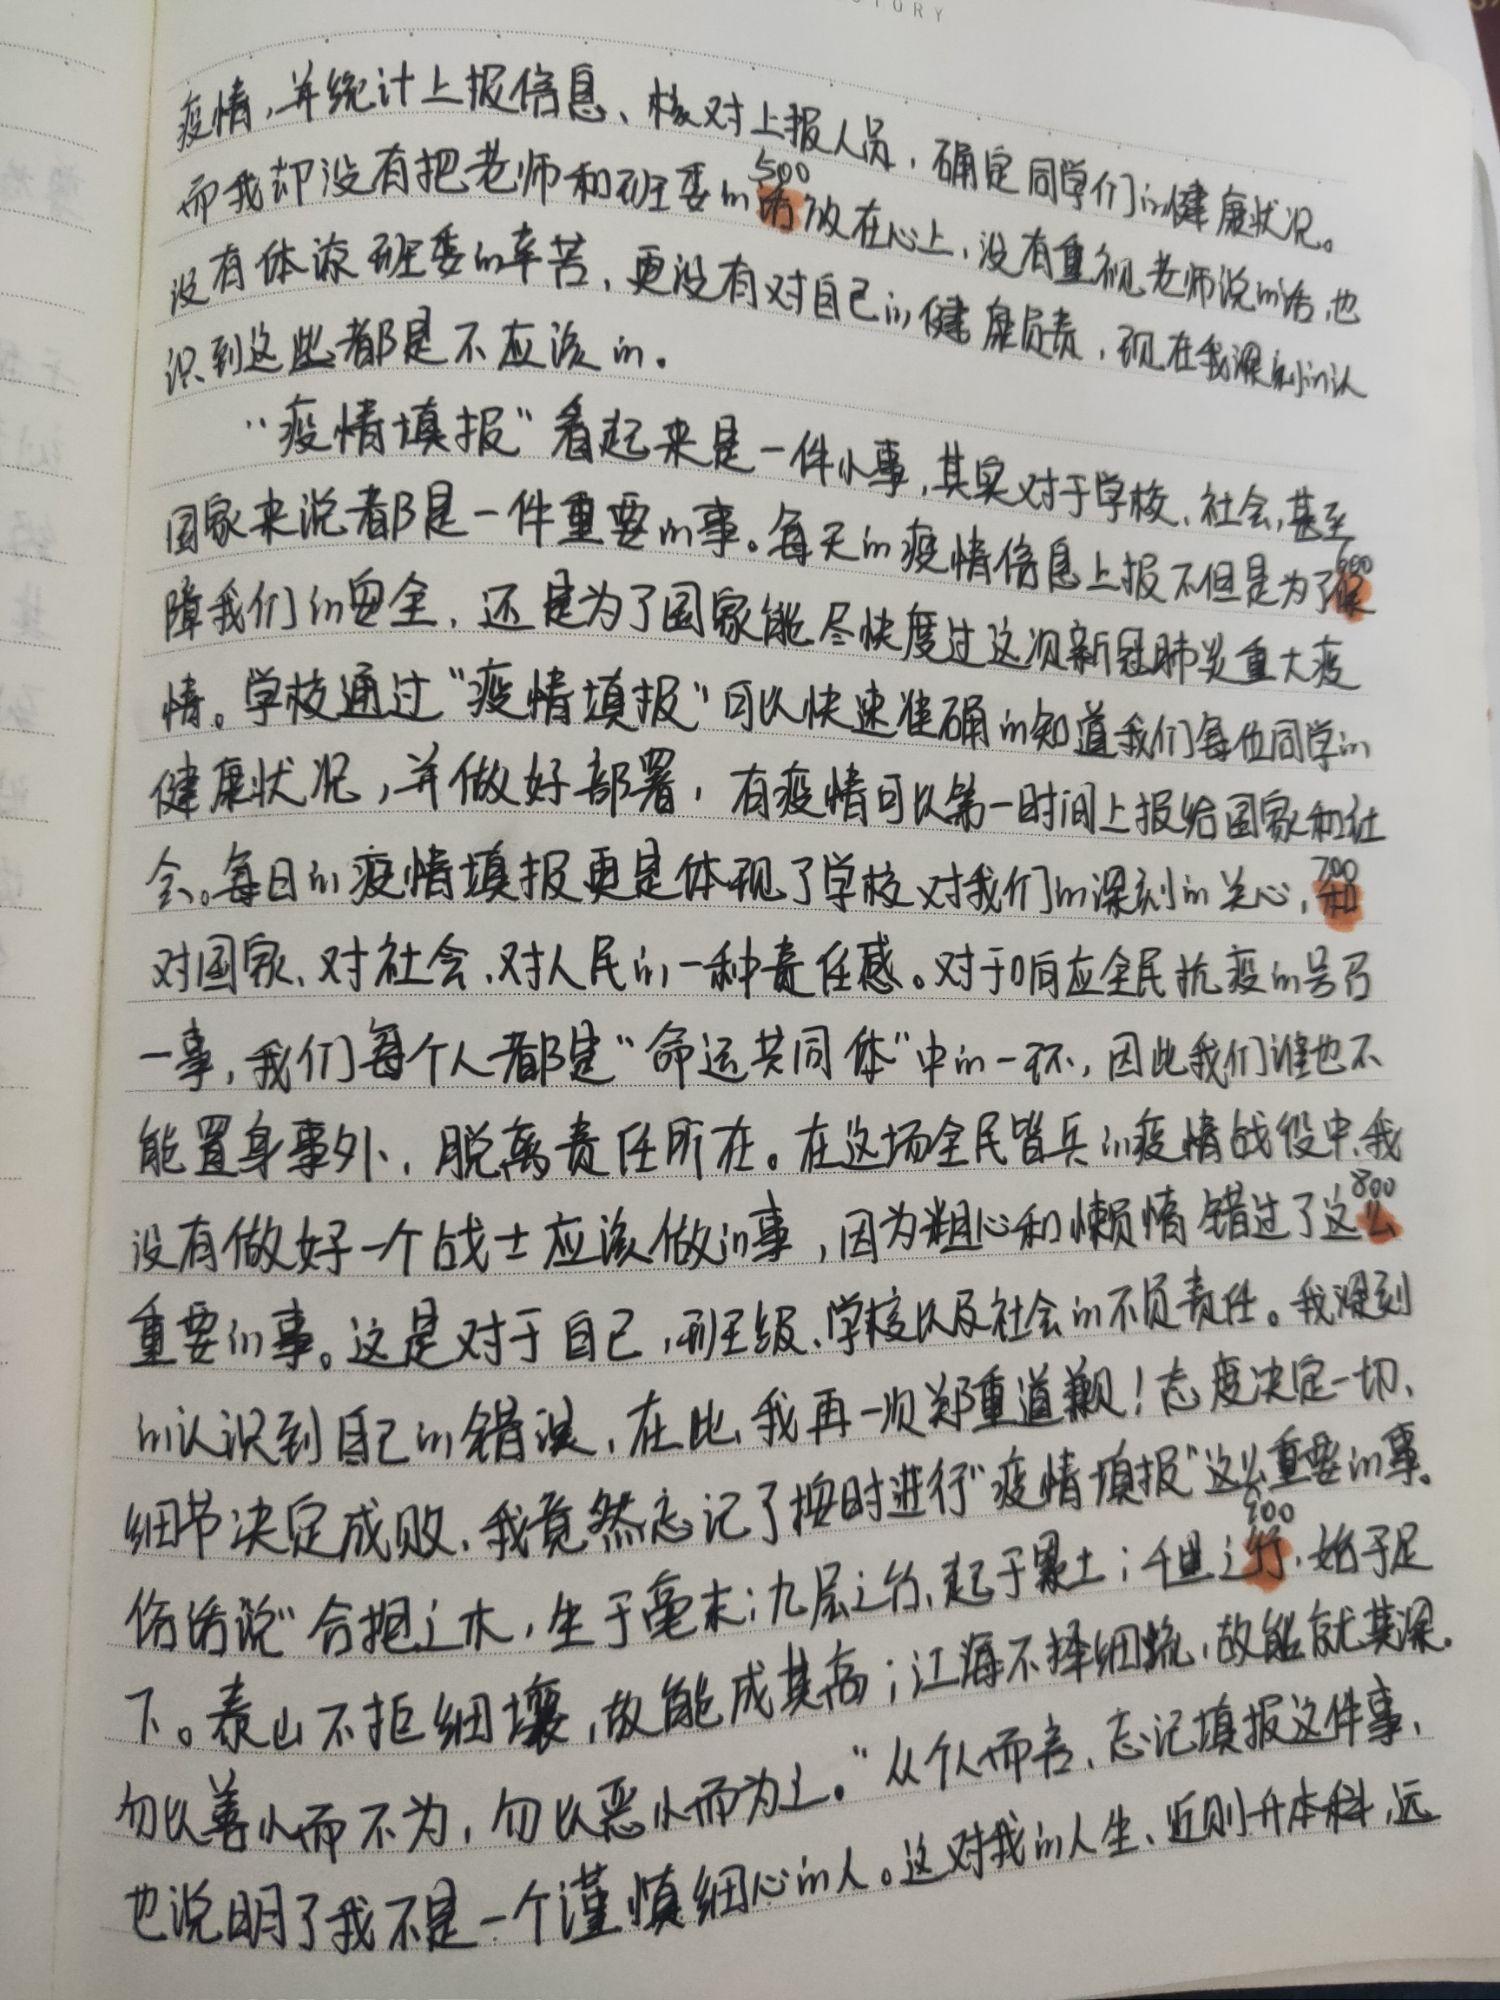 STORY
疫情，并统计上报信息、核对上报人员，确定同学们的健康状况。
500
而我却没有把老师和班委的话放在心上，没有重视老师说的话，也
没有体谅班委的辛苦，更没有对自己的健康负责，现在我深刻的认
识到这些都是不应该的。
“疫情填报”看起来是一件小事，其实对于学校、社会，甚至
国家来说都是一件重要的事。每天的疫情信息上报不但是为了保
600
障我们的安全，还是为了国家能尽快度过这次新冠肺炎重大疫
情。学校通过“疫情填报”可以快速准确的知道我们每位同学的
健康状况，并做好部署，有疫情可以第一时间上报给国家和社
会。每日的疫情填报更是体现了学校对我们的深刻的关心，和
700
对国家、对社会、对人民的一种责任感。对于响应全民抗疫的号召
一事，我们每个人都是“命运共同体”中的一环，因此我们谁也不
能置身事外、脱离责任所在。在这场全民皆兵的疫情战役中，我
800
没有做好一个战士应该做的事，因为粗心和懒惰错过了这么
重要的事。这是对于自己，班级、学校以及社会的不负责任。我深刻
的认识到自己的错误，在此，我再一次郑重道歉！态度决定一切、
细节决定成败，我竟然忘记了按时进行“疫情填报”这么重要的事。
900
俗话说“合抱之木，生于毫末；九层之台，起于累土；千里之行，始于足
下。泰山不拒细壤，故能成其高；江海不择细流，故能就其深。
勿以善小而不为，勿以恶小而为之。”从个人而言，忘记填报这件事，
也说明了我不是一个谨慎细心的人。这对我的人生、近则升本科，远